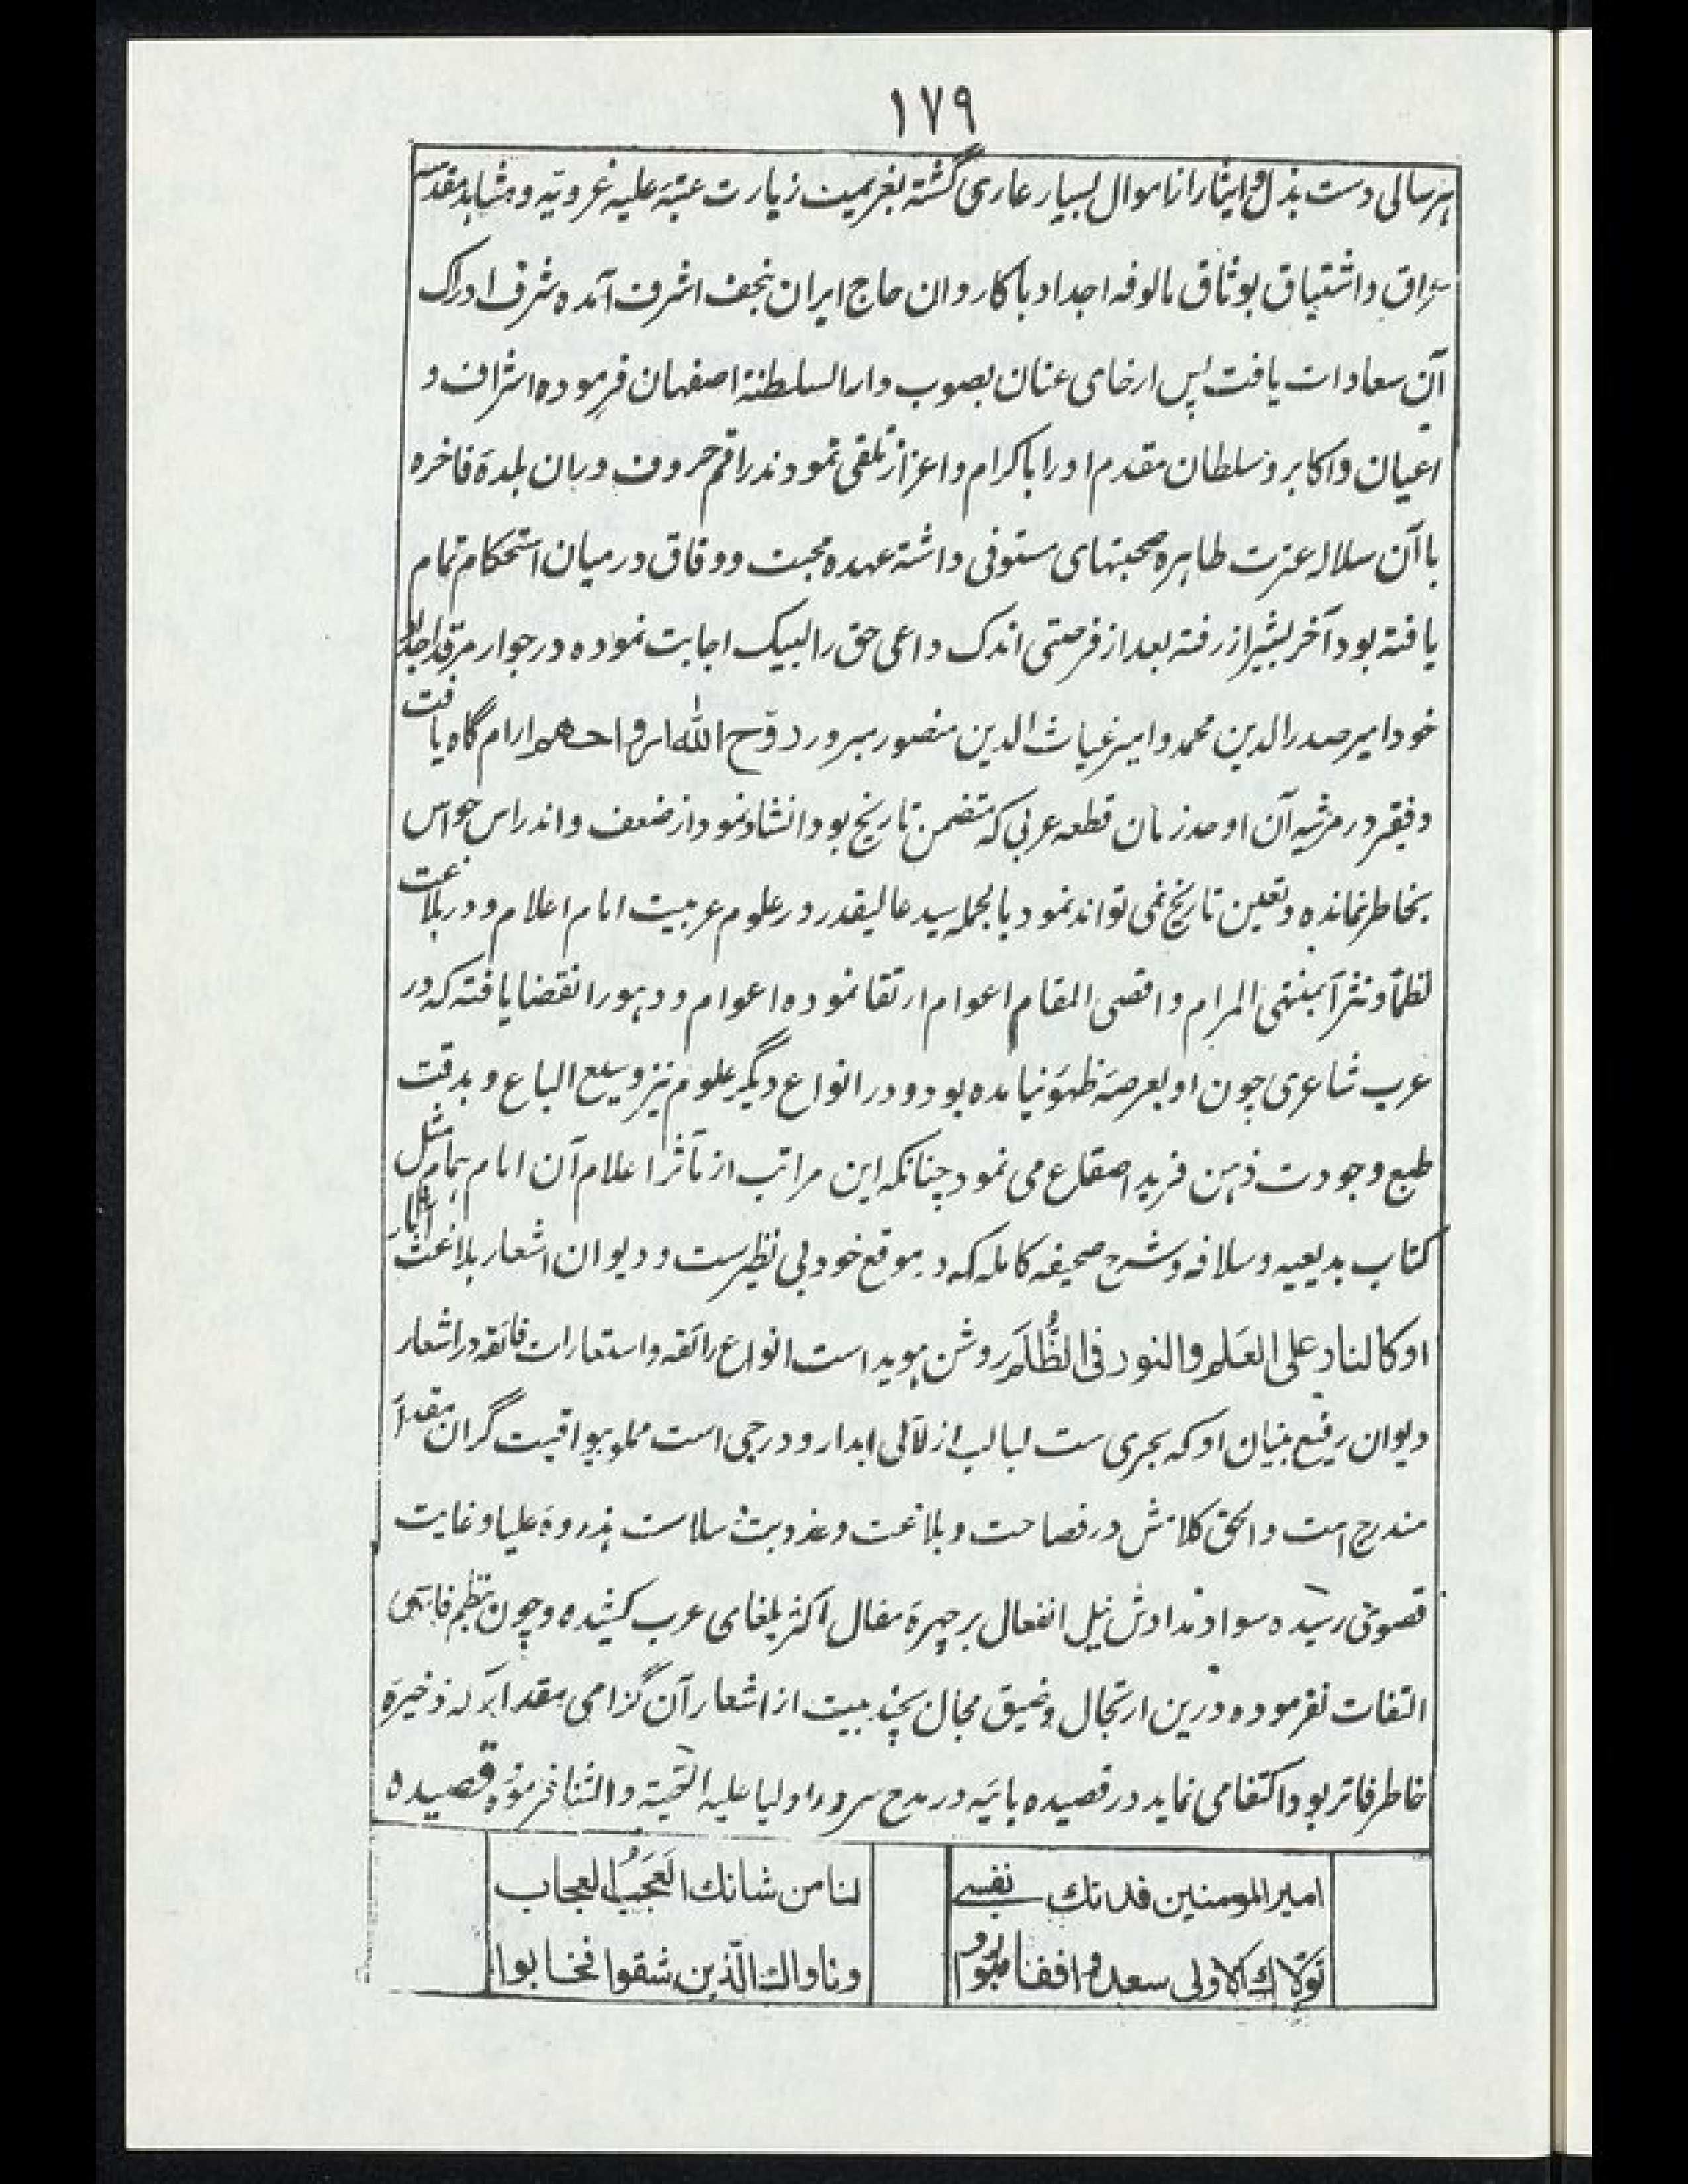 ۱۷۹
هر سالی دست بذل و ایثار از اموال بسیار عاری گشته بغریمیت زیارت عتبهٔ علیه غرویه و مشاهد مقدسه
عراق و اشتیاق بوثاق مالوفه اجداد با کاروان حاج ایران بنجف اشرف آمده شرف ادراک
آن سعادات یافت پس ارخای عنان بصوب دارالسلطنة اصفهان فرموده اشراف و
اعیان و اکابر و سلطان مقدم او را باکرام و اعزاز تلقی نمودند راقم حروف دران بلدهٔ فاخره
با آن سلاله عترت طاهره صحبتهای ستوفی داشته عهده محبت و وفاق در میان استحکام تمام
یافته بود آخر بشیراز رفته بعد از فرصتی اندک داعی حق را لبیک اجابت نموده در جوار مرقد اجداد
خود امیر صدرالدین محمد و امیر غیاث الدین منصور روح الله ارواحهم ارام گاه یافت
و فقیر در مرثیه آن اوحد زمان قطعه عربی که متضمن تاریخ بود انشاد نمود از ضعف و اندراس حواس
بخاطر نمانده و تعین تاریخ نمی تواند نمود بالجمله سید عالیقدر در علوم عربیت امام اعلام و در بلاغت
نظماً و نثراً بمنتهی المرام و اقصی المقام اعوام ارتقا نموده اعوام و دهور انقضا یافته که در
عرب شاعری چون او بعرصهٔ ظهور نیامده بود و در انواع دیگر علوم نیز وسیع الباع و بدقت
طبع وجودت ذهن فرید اصقاع می نمود چنانکه این مراتب از مآثر اعلام آن امام همام مثل
کتاب بدیعیه و سلافه و شرح صحیفه کامله که در موقع خود بی نظیرست و دیوان اشعار بلاغت آثار
او کالنار علی العَلم والنور فی الظُّلَم روشن هویداست انواع رائقه و استعارات فائقه در اشعار
دیوان رفیع بنیان او که بحری ست لبالب از لآلی ابدار و درجی است مملو بیواقیت گران مقدار
مندرج است و الحق کلامش در فصاحت و بلاغت و عذوبت سلاست بذروهٔ علیا و غایت
قصوی رسیده سواد مدادش نیل انفعال بر چهرهٔ مقال اکثر بلغای عرب کشیده و چون بنظم فارسی
التفات نفرموده درین ارتجال و ضیق مجال بچند بیت از اشعار آن گرامی مقدار که ذخیرهٔ
خاطر فاتر بود اکتفا می نماید در قصیده بائیه در مدح سرور اولیا علیه التحیة والثنا فرموده قصیده
امیر المومنین فدتك نفسے لنا من شانك العَجَبُ العجاب
تَوَلّاك الاولی سعدوا ففازوا وناواك الّذین شقوا فخابوا